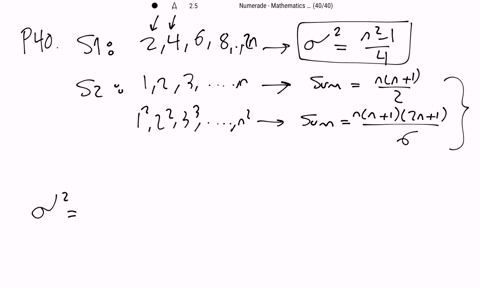 2.5 Numerade - Mathematics ... (40/40)
P40. S1: 2, 4, 6, 8, .., 2n → σ² = n²-1/4
S2: 1, 2, 3, ....n → Sum = n(n+1)/2
1², 2², 3³, ...., n² → Sum = n(n+1)(2n+1)/6
σ² =